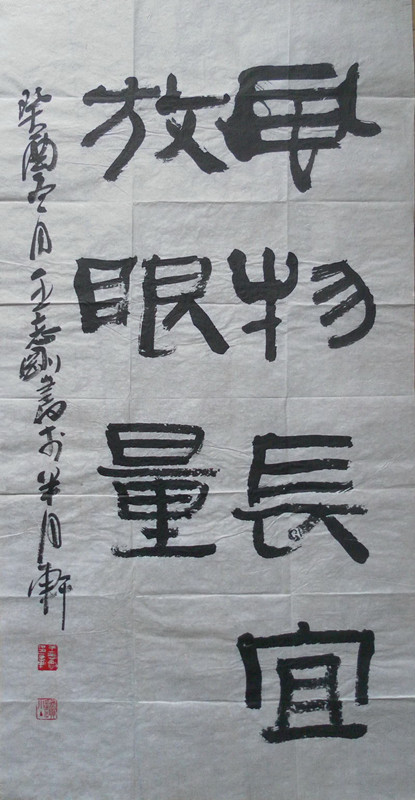 風物長宜
放眼量
癸酉冬月王志剛書於半月軒